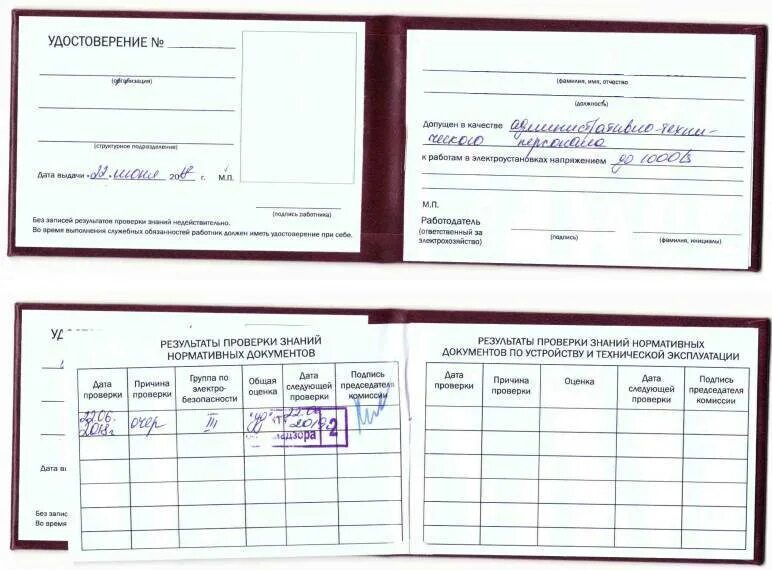 УДОСТОВЕРЕНИЕ №
(организация)
(структурное подразделение)
Дата выдачи «22 июня 2018 г. М.П.
(подпись работника)
Без записей результатов проверки знаний недействительно.
Во время выполнения служебных обязанностей работник должен иметь удостоверение при себе.
(фамилия, имя, отчество)
(должность)
Допущен в качестве административно-техни-
ческого персонала
к работам в электроустановках напряжением до 1000В
М.П.
Работодатель
(ответственный за
электрохозяйство)
(подпись)
(фамилия, инициалы)
УД
Дата вы
Без запис
Во время
РЕЗУЛЬТАТЫ ПРОВЕРКИ ЗНАНИЙ
НОРМАТИВНЫХ ДОКУМЕНТОВ
Дата проверки Причина проверки Группа по электро-безопасности Общая оценка Дата следующей проверки Подпись председателя комиссии
22.06. 2018г очер III 22.06 2019
надзора 2
РЕЗУЛЬТАТЫ ПРОВЕРКИ ЗНАНИЙ НОРМАТИВНЫХ
ДОКУМЕНТОВ ПО УСТРОЙСТВУ И ТЕХНИЧЕСКОЙ ЭКСПЛУАТАЦИИ
Дата проверки Причина проверки Оценка Дата следующей проверки Подпись председателя комиссии